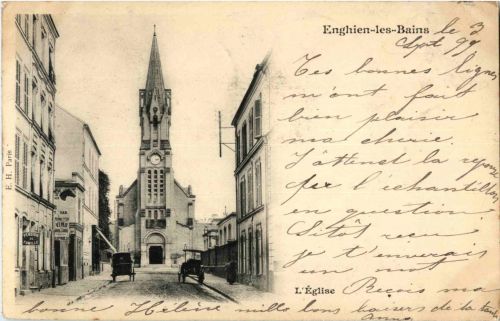 Enghien-les-Bains le 3
Sept 99
Tes bonnes lignes
m'ont fait
bien plaisir
ma cherie.
J'attends la
par l'échantillon
en question.
Sitôt recu
je t'enverais
un mot
L'Église Recois ma
bonne Hélène mille bons baisers de ta tante
E. H. Paris
BAR